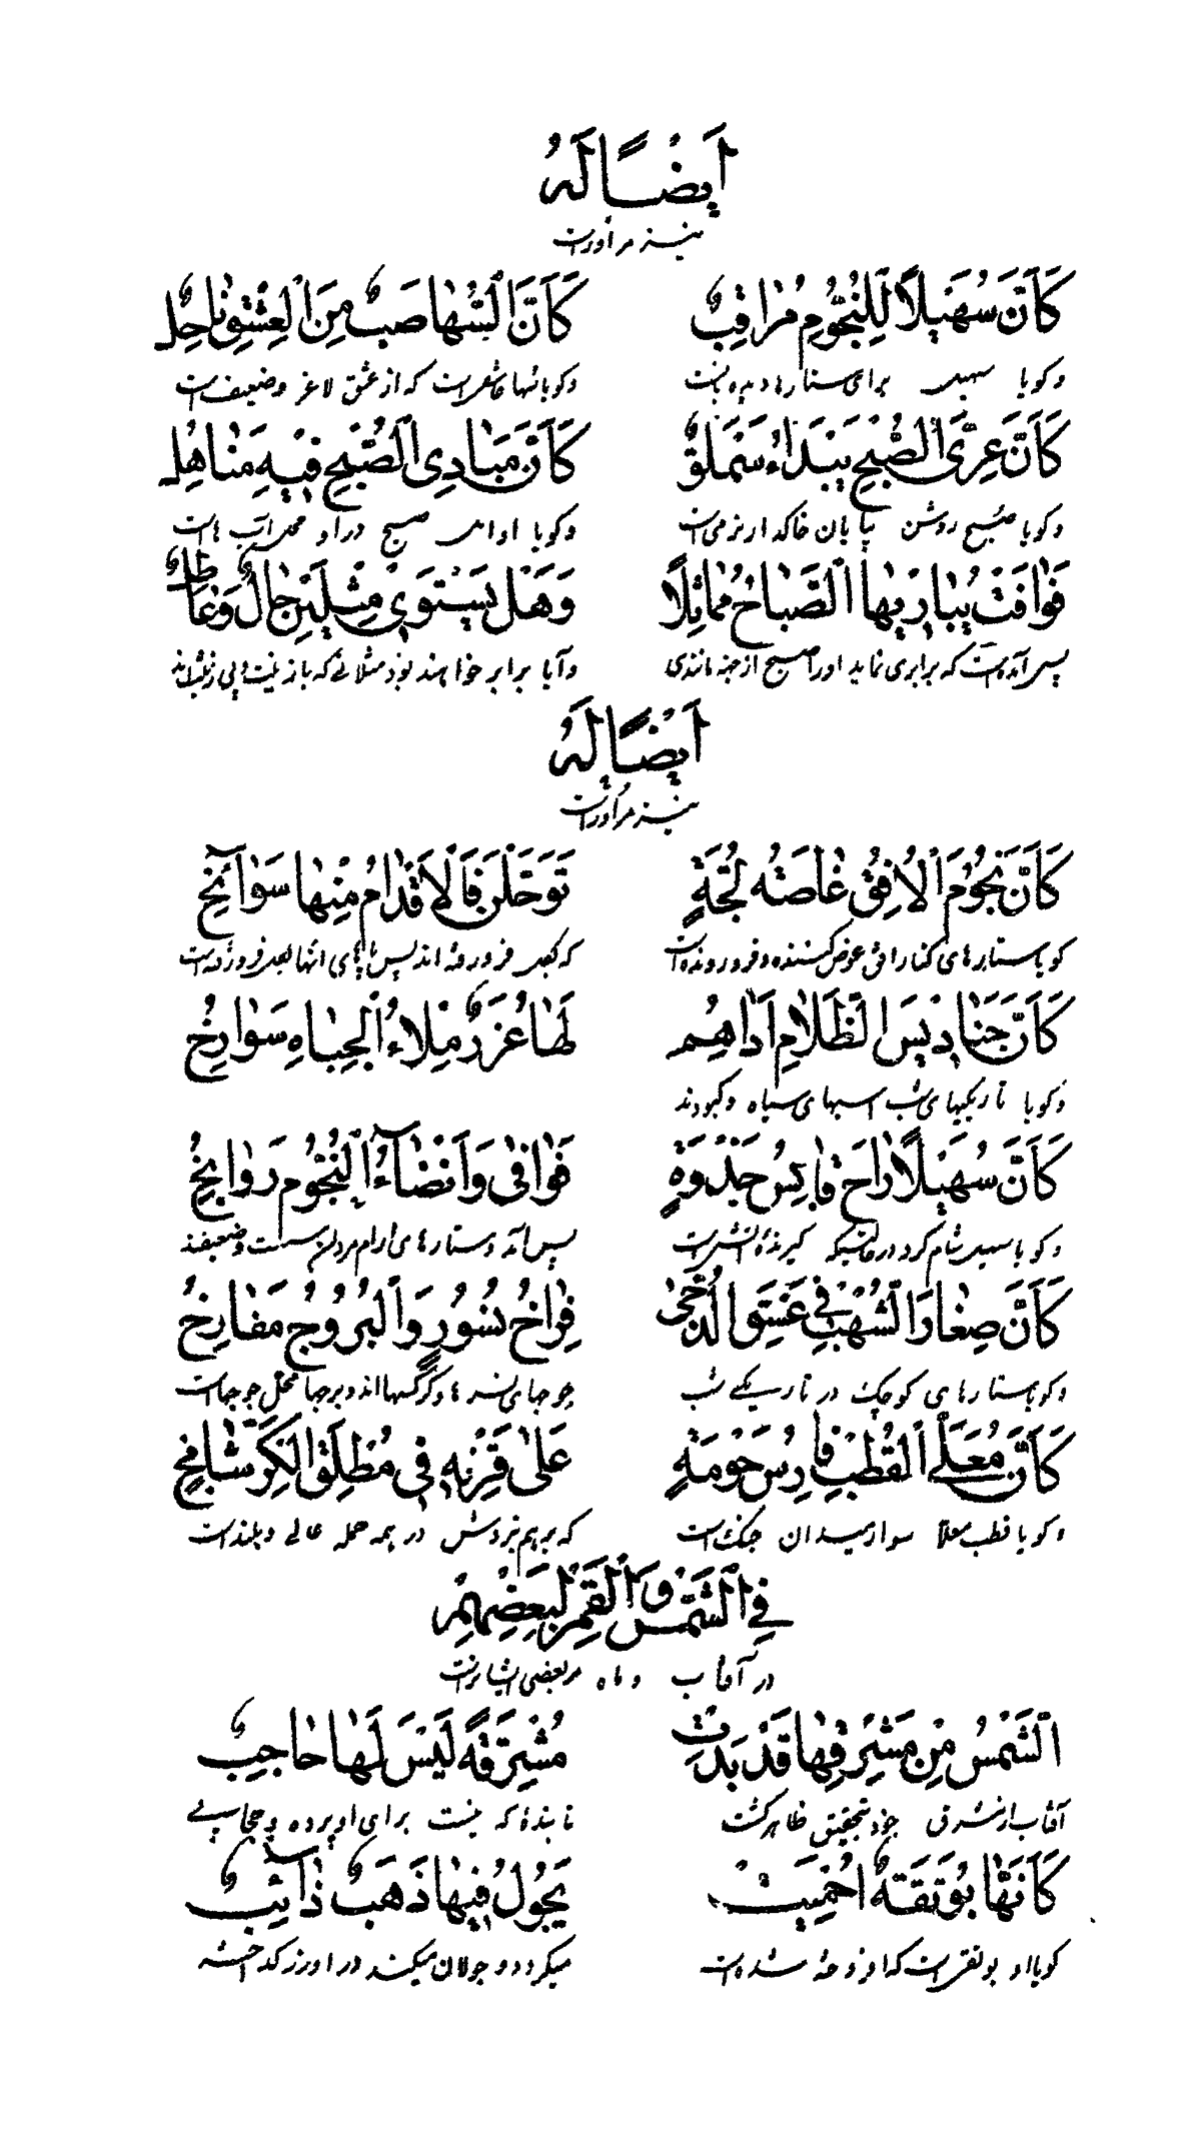 أَيضًا لَهُ
نیز مر اوراست
كَأَنَّ سُهَيْلًا لِلنُّجُومِ مُرَاقِبٌ كَأَنَّ السُّهَا صَبٌّ مِنَ الْعِشْقِ نَاحِلٌ
و گویا سهیل برای ستارها دیده‌ است و گویا سها عاشقی است که از عشق لاغر و ضعیف است
كَأَنَّ عِرَى الصُّبْحِ بَيْدَاءُ سَمْلَقٌ كَأَنَّ مَبَادِي الصُّبْحِ فِيهِ مَنَاهِلُ
و گویا صبح روشن بیابان خاکدار نرمی است و گویا اوایل صبح در او محل آب است
فَوَافَتْ يُبَارِيهَا الصَّبَاحُ مُمَاثِلًا وَهَلْ يَسْتَوِي مِثْلَيْنِ حَالٌ وَعَاطِلٌ
پس آمده است که برابری نماید او را صبح از مانندی و آیا برابر خواهند بود
أَيضًا لَهُ
نیز مر اوراست
كَأَنَّ نُجُومَ الْأُفْقِ غَاصَتْهُ لُجَّةٍ تَوَحَّلْنَ فَالْأَقْدَامُ مِنْهَا سَوَآئِخُ
گویا ستارهای که بگل فرو رفته اند پس پای آنها بگل فرو رفته است
كَأَنَّ حَنَادِيسَ الظَّلَامِ أَدَاهِمٌ لَهَا غُرَرٌ مِلَاءُ الْجِبَاهِ سَوَارِخُ
و گویا تاریکیهای شب اسبهای سیاه و کبودند
كَأَنَّ سُهَيْلًا رَاحَ قَابِسُ جَذْوَةٍ فَوَافَى وَأَنْضَآءُ النُّجُومِ رَوَابِخُ
و گویا سهیل شام کرد در حالتیکه گیرندهٔ آتش است پس آمد و ستارهای
كَأَنَّ صِغَارَ الشُّهْبِ فِي غَسَقِ الدُّجَى فِرَاخُ نُسُورٍ وَالْبُرُوجُ مَفَارِخُ
و گویا ستارهای کوچک در تاریکی شب جوجهای نسرها و کرگسها اند و برجها محل جوجهاست
كَأَنَّ مُعَلَّى الْقُطْبِ فَارِسُ حَوْمَةٍ عَلَى قِرْنِهِ فِي مُطْلَقِ الْكَرِّ شَامِخٌ
و گویا قطب معلا سوار میدان جنگ است که بر هم نبردش در همه حمله عالی و بلند است
فِي الشَّمْسِ وَالْقَمَرِ لِبَعْضِهِمْ
در آفتاب و ماه مر بعضی ایشانراست
الشَّمْسُ مِنْ مَشْرِقِهَا قَدْ بَدَتْ مُشْرِقَةً لَيْسَ لَهَا حَاجِبٌ
آفتاب از مشرق خود بتحقیق ظاهر گشت تابندهٔ که نیست برای او پرده و حجابی
كَأَنَّهَا بُوتَقَةٌ أُحْمِيَتْ يَجُولُ فِيهَا ذَهَبٌ ذَآئِبٌ
گویا او بوتقه است که افروخته شده است میگردد و جولان میکند در او زر گداخته